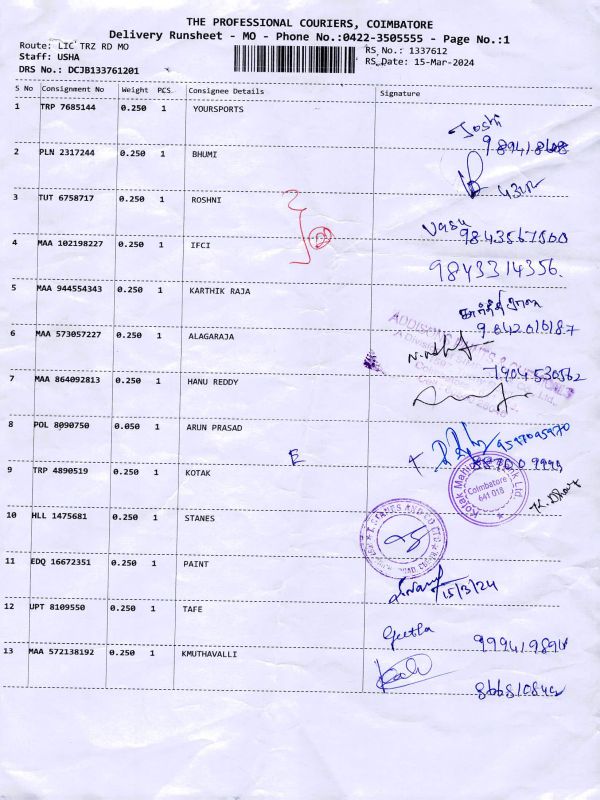 THE PROFESSIONAL COURIERS, COIMBATORE
Delivery Runsheet - MO - Phone No.:0422-3505555 - Page No.:1
Route: LIC TRZ RD MO
RS No.: 1337612
Staff: USHA
RS Date: 15-Mar-2024
DRS No.: DCJB133761201
S No Consignment No Weight PCS Consignee Details Signature
1 TRP 7685144 0.250 1 YOURSPORTS
Joshi
2 PLN 2317244 0.250 1 BHUMI
3 TUT 6758717 0.250 1 ROSHNI
Vasu
9843567500
4 MAA 102198227 0.250 1 IFCI
9843314356.
5 MAA 944554343 0.250 1 KARTHIK RAJA
கார்த்திக்ராஜா
9842010187
6 MAA 573057227 0.250 1 ALAGARAJA
7904530562
7 MAA 864092813 0.250 1 HANU REDDY
8 POL 8090750 0.050 1 ARUN PRASAD
9597095970
E
9 TRP 4890519 0.250 1 KOTAK
Coimbatore
641 018
10 HLL 1475681 0.250 1 STANES
11 EDQ 16672351 0.250 1 PAINT
15/3/24
12 UPT 8109550 0.250 1 TAFE
Geetha
9994198914
13 MAA 572138192 0.250 1 KMUTHAVALLI